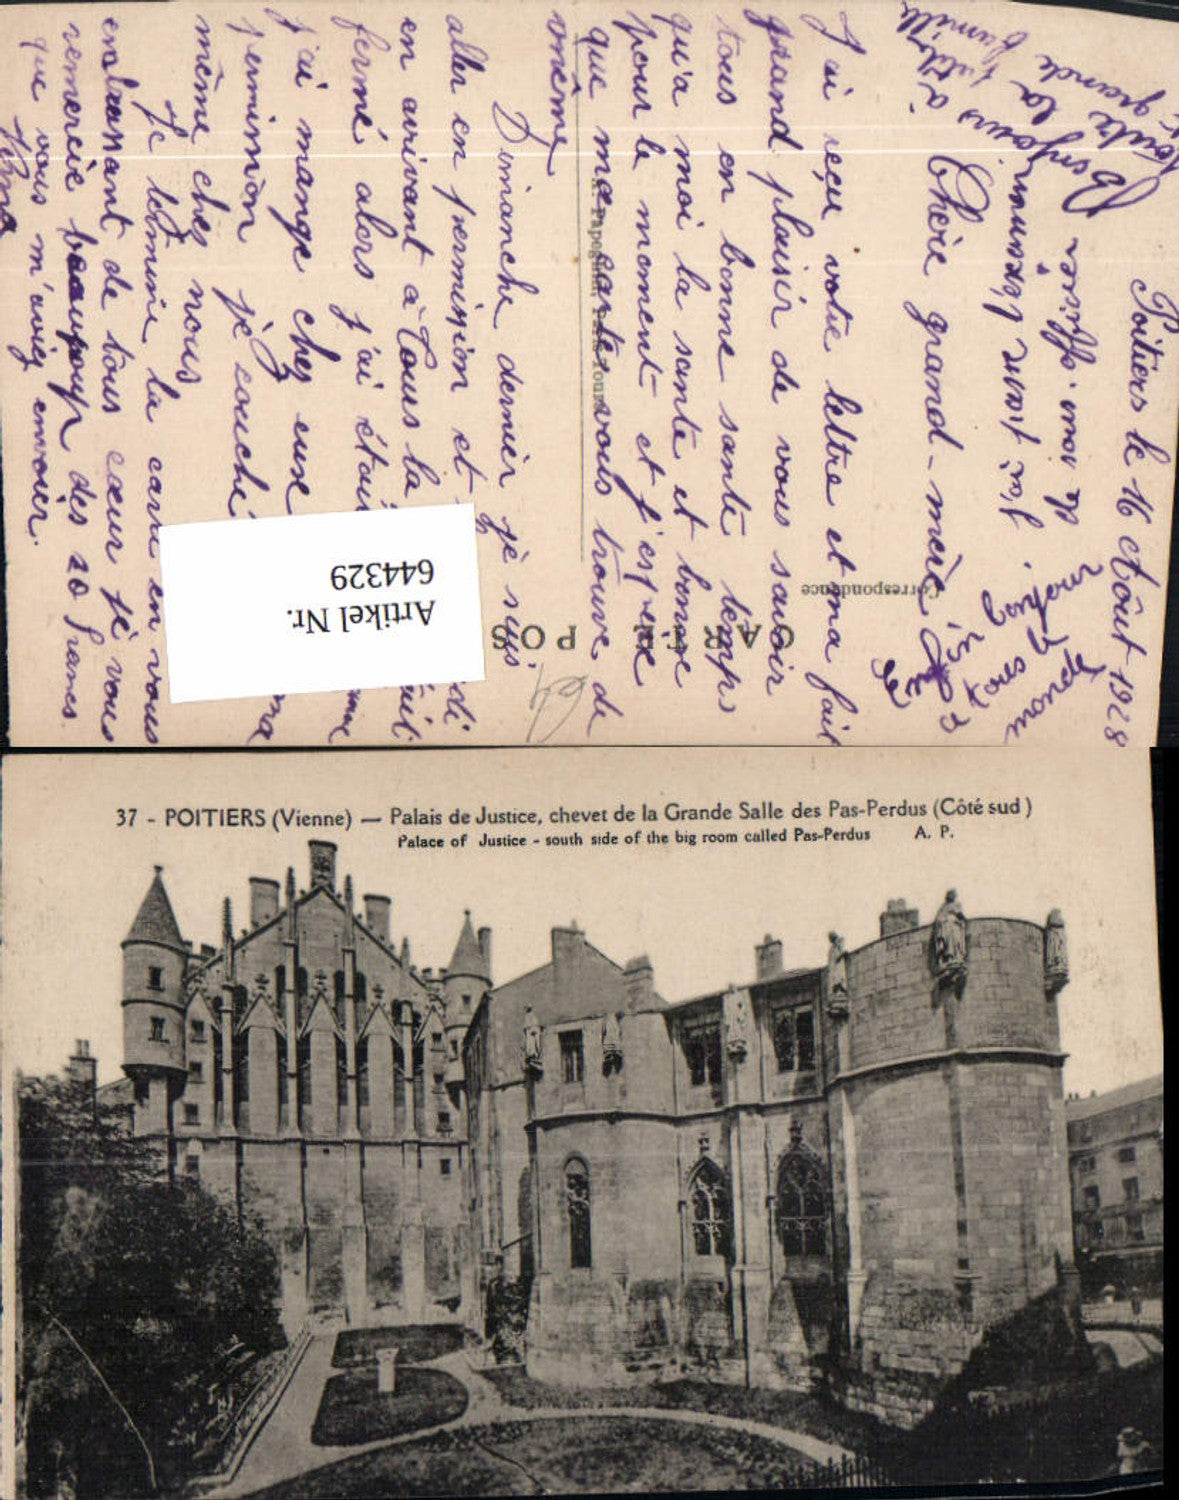 Poitiers le 16 Août 1928
Chère grand-mère
J'ai reçu votre lettre et ma fait
grand plaisir de vous savoir
tous en bonne santé temps
qu'a moi la sante et bonne
pour le moment et j'espère
que ma carte vous trouve de
même
Dimanche dernier je suis
aller en permission et
en arivant à Tours la
fermé alors j'ai étai
j'ai mangé chez eux
permision je couché
même chez nous
Je termine la carte en vous
embrassant de tous cœur je vous
remercie beaucoup des 20 francs
que vous m'aviez envoier.
Bonjours à
toute la
grande famille
de mon officier
Enfin bonjour
à tous le
monde
CARTE POS
Correspondance
64
Artikel Nr.
644329
37 - POITIERS (Vienne) — Palais de Justice, chevet de la Grande Salle des Pas-Perdus (Côté sud)
Palace of Justice - south side of the big room called Pas-Perdus A. P.